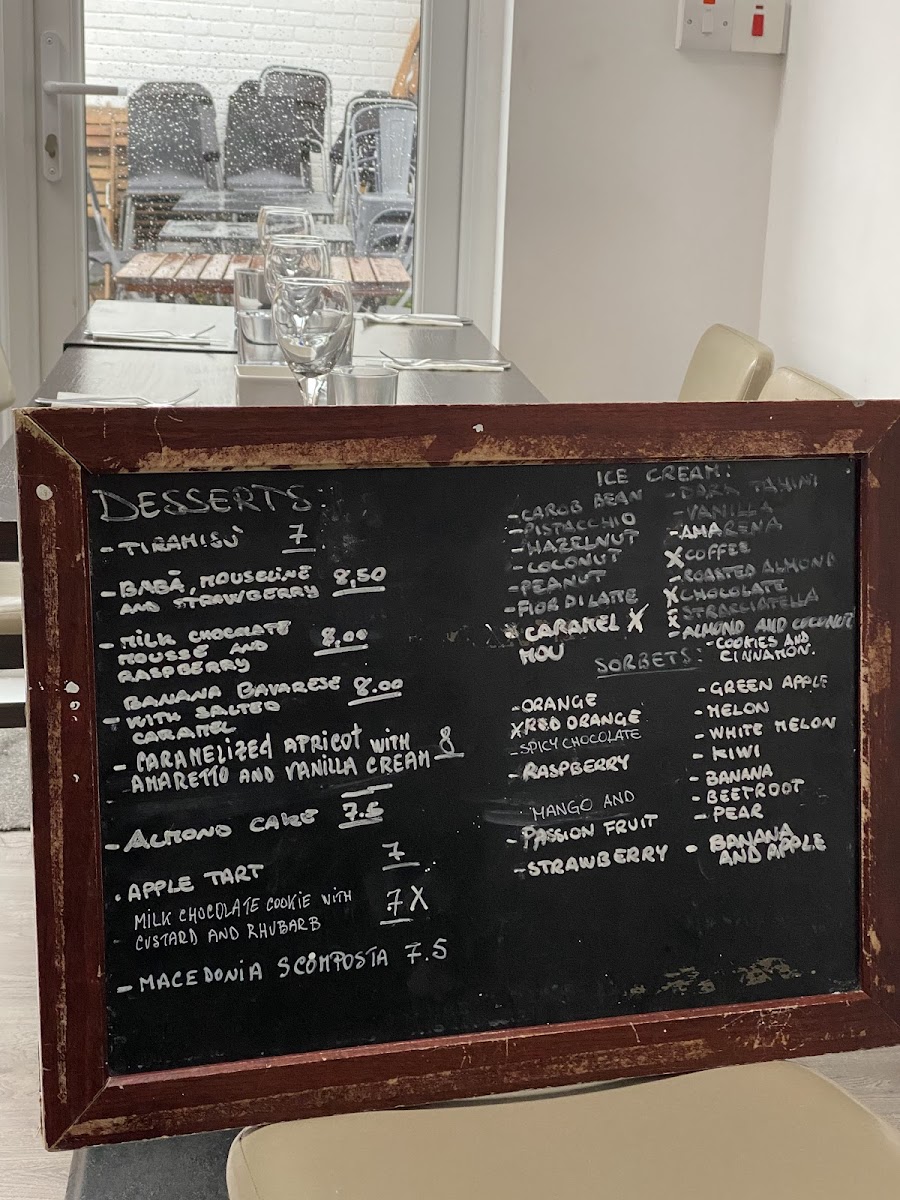 DESSERTS:
- TIRAMISÙ 7
- BABÀ, MOUSELINE 8,50
AND STRAWBERRY
- MILK CHOCOLATE 8,00
MOUSSE AND
RASPBERRY
BANANA BAVARESE 8.00
- WITH SALTED
CARAMEL
- CARAMELIZED APRICOT WITH 8
AMARETTO AND VANILLA CREAM
- ALMOND CAKE 7.5
• APPLE TART 7
MILK CHOCOLATE COOKIE WITH 7 X
- CUSTARD AND RHUBARB
- MACEDONIA SCOMPOSTA 7.5
ICE CREAM:
- CAROB BEAN
- PISTACCHIO
- HAZELNUT
- COCONUT
- PEANUT
- FIOR DI LATTE
• CARAMEL X
MOU
- DARK TAHINI
- VANILLA
- AMARENA
X COFFEE
- ROASTED ALMOND
X CHOCOLATE
X STRACCIATELLA
- ALMOND AND COCONUT
- COOKIES AND
CINNAMON.
SORBETS:
- ORANGE
X RED ORANGE
- SPICY CHOCOLATE
- RASPBERRY
MANGO AND
- PASSION FRUIT
- STRAWBERRY
- GREEN APPLE
- MELON
- WHITE MELON
- KIWI
- BANANA
- BEETROOT
- PEAR
• BANANA
AND APPLE